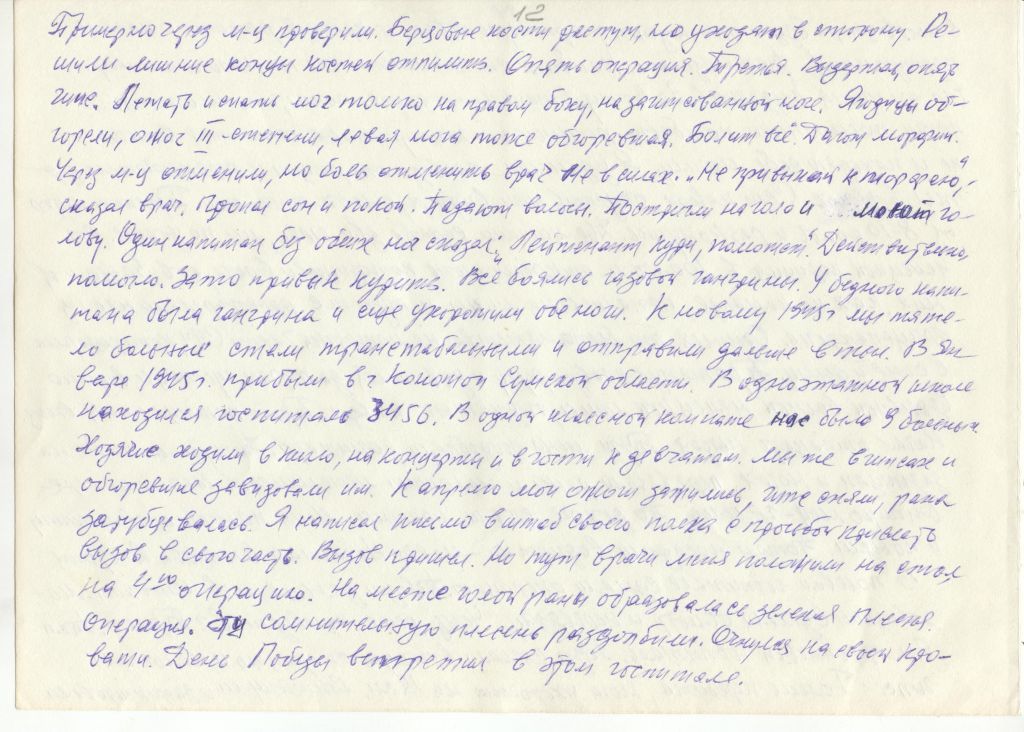 12
Примерно через м-ц проверили. Берцовые кости растут, но уходят в сторону. Ре-
шили лишние концы костей отпилить. Опять операция. Третья. Выдержал, опять
гипс. Лежать и спать мог только на правом боку, на загипсованной ноге. Ягодицы об-
горели, ожог III-степени, левая нога тоже обгоревшая. Болит всё. Дают морфий.
Через м-ц отменили, но боль отменить врач не в силах. "Не привыкай к морфею",
сказал врач. Пропал сон и покой. Падают волосы. Постригли наголо и мотают го-
лову. Один капитан без обеих ног сказал: "Лейтенант кури, поможет". Действительно,
помогло. Зато привык курить. Все боялись газовой гангрины. У бедного капи-
тана была гангрина и еще укоротили обе ноги. К новому 1945 г мы тяже-
ло больные стали транстабельными и отправили дальше в тыл. В Ян-
варе 1945 г. прибыли в г Конотоп Сумской области. В одноэтажной школе
находился госпиталь 3456. В одной классной комнате нас было 9 больных.
Ходячие ходили в кино, на концерты и в гости к девчатам. Мы же в гипсах и
обгоревшие завидовали им. К апрелю мои ожоги зажились, гипс сняли, рана
зарубцевалась. Я написал письмо в штаб своего полка с просьбой прислать
вызов в свою часть. Вызов пришел. Но тут врачи меня положили на стол
на 4ую операцию. На месте голой раны образовалась зеленая плесень.
Операция. Эту сомнительную плесень раздолбили. Очнулся на своей кро-
вати. День Победы встретил в этом госпитале.